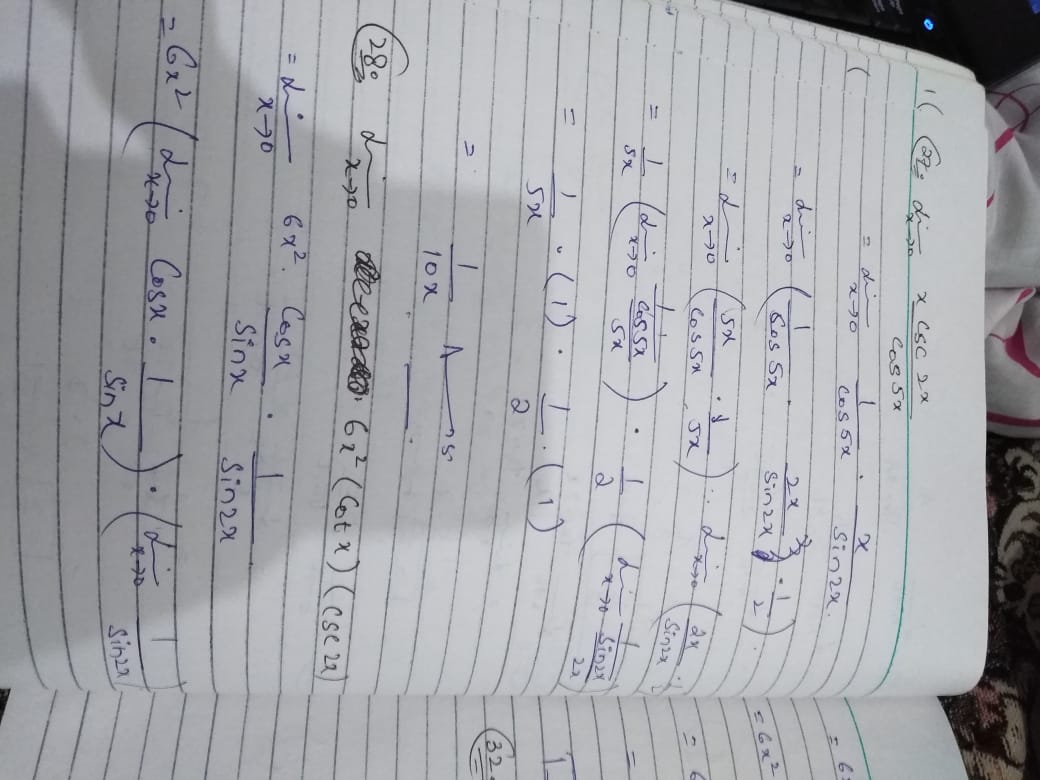 27. lim x→0 x csc 2x / cos 5x
= lim x→0 1/cos 5x · x/sin 2x
= lim x→0 (1/cos 5x · 2x/sin 2x · 1/2)
= lim x→0 (5x/cos 5x · 1/5x) · lim x→0 (2x/sin 2x ·
= 1/5x (lim x→0 1/(cos 5x/5x)) · 1/2 (lim x→0 1/(sin 2x/2x))
= 1/5x · (1) · 1/2 · (1)
= 1/10x Ans
28. lim x→0 6x² (cot x) (csc 2x)
= lim x→0 6x² · cos x/sin x · 1/sin 2x
= 6x² (lim x→0 cos x · 1/sin x) · (lim x→0 1/sin 2x)
= 6x²
32.